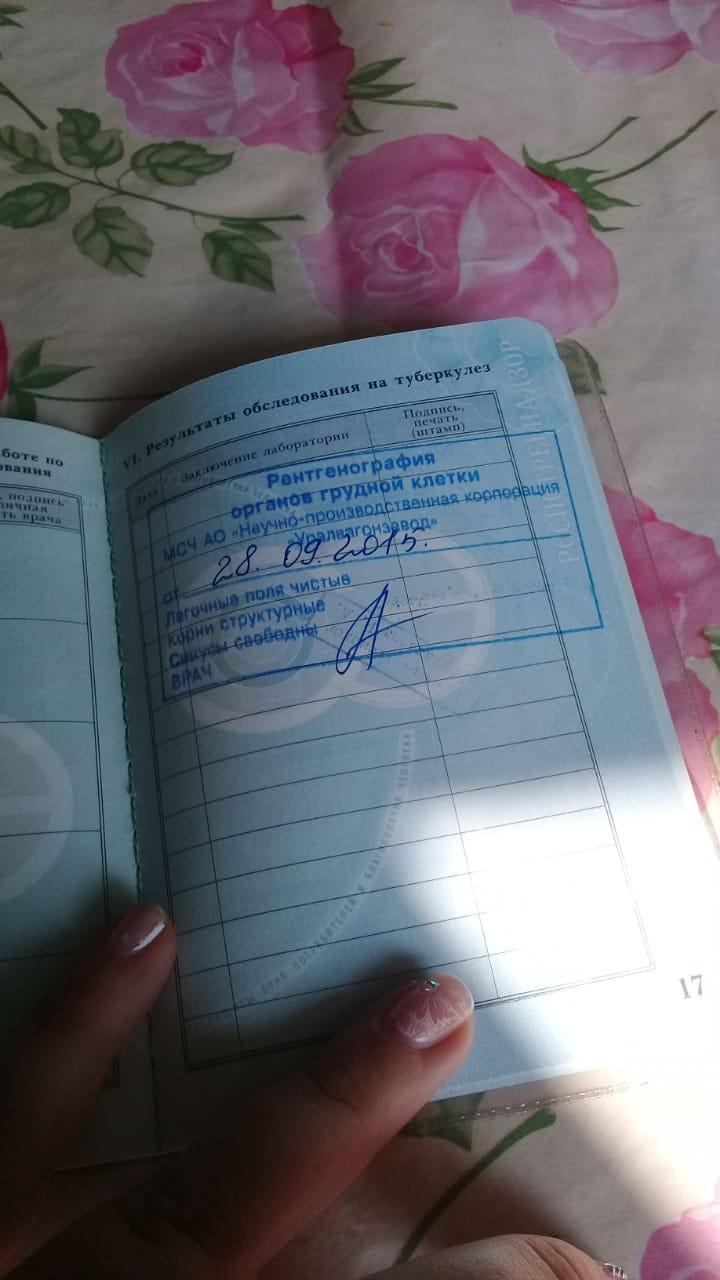 боте по
ования
, подпись
личная
ть врача
VI. Результаты обследования на туберкулез
Дата
Заключение лаборатории
Подпись,
печать
(штамп)
Рентгенография
органов грудной клетки
МСЧ АО «Научно-производственная корпорация
«Уралвагонзавод»
от 28. 09. 2015.
Легочные поля чистые
Корни структурные
Синусы свободны
ВРАЧ
РОСПОТРЕБНАДЗОР
ЗАЩИТЫ ПРАВ ПОТРЕБИТЕЛЕЙ И БЛАГОПОЛУЧИЯ ЧЕЛОВЕКА
17